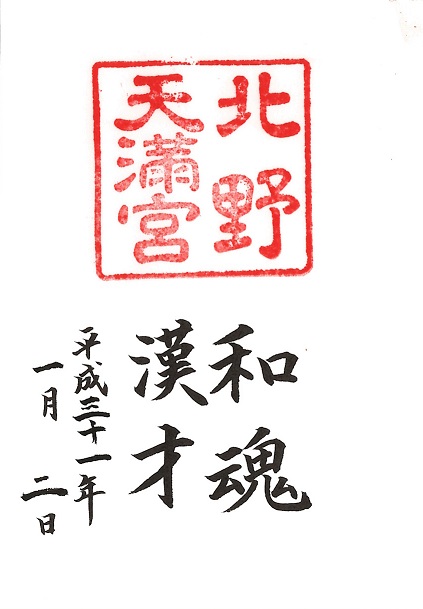 北野
天満宮
和魂
漢才
平成三十一年
一月 二日